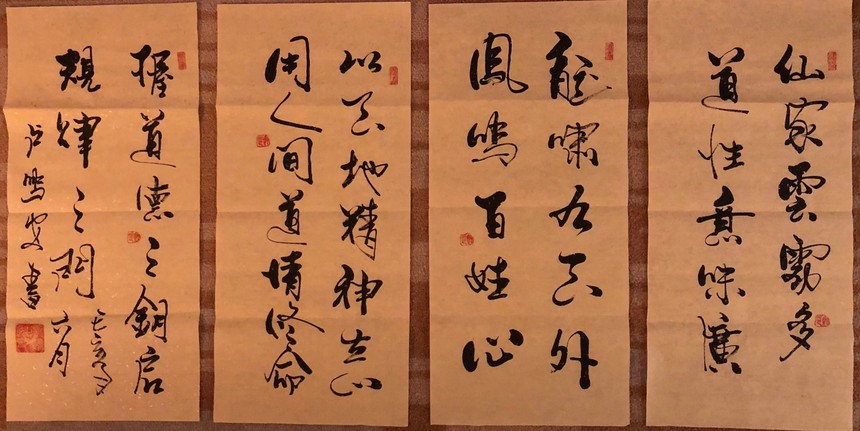 仙家雲霧多
道性意味廣
龍嘯九天外
鳳鳴百姓心
以天地精神立心
用人間道情修命
握道德之鑰启
規律之門
己亥年
六月
卢鸣书